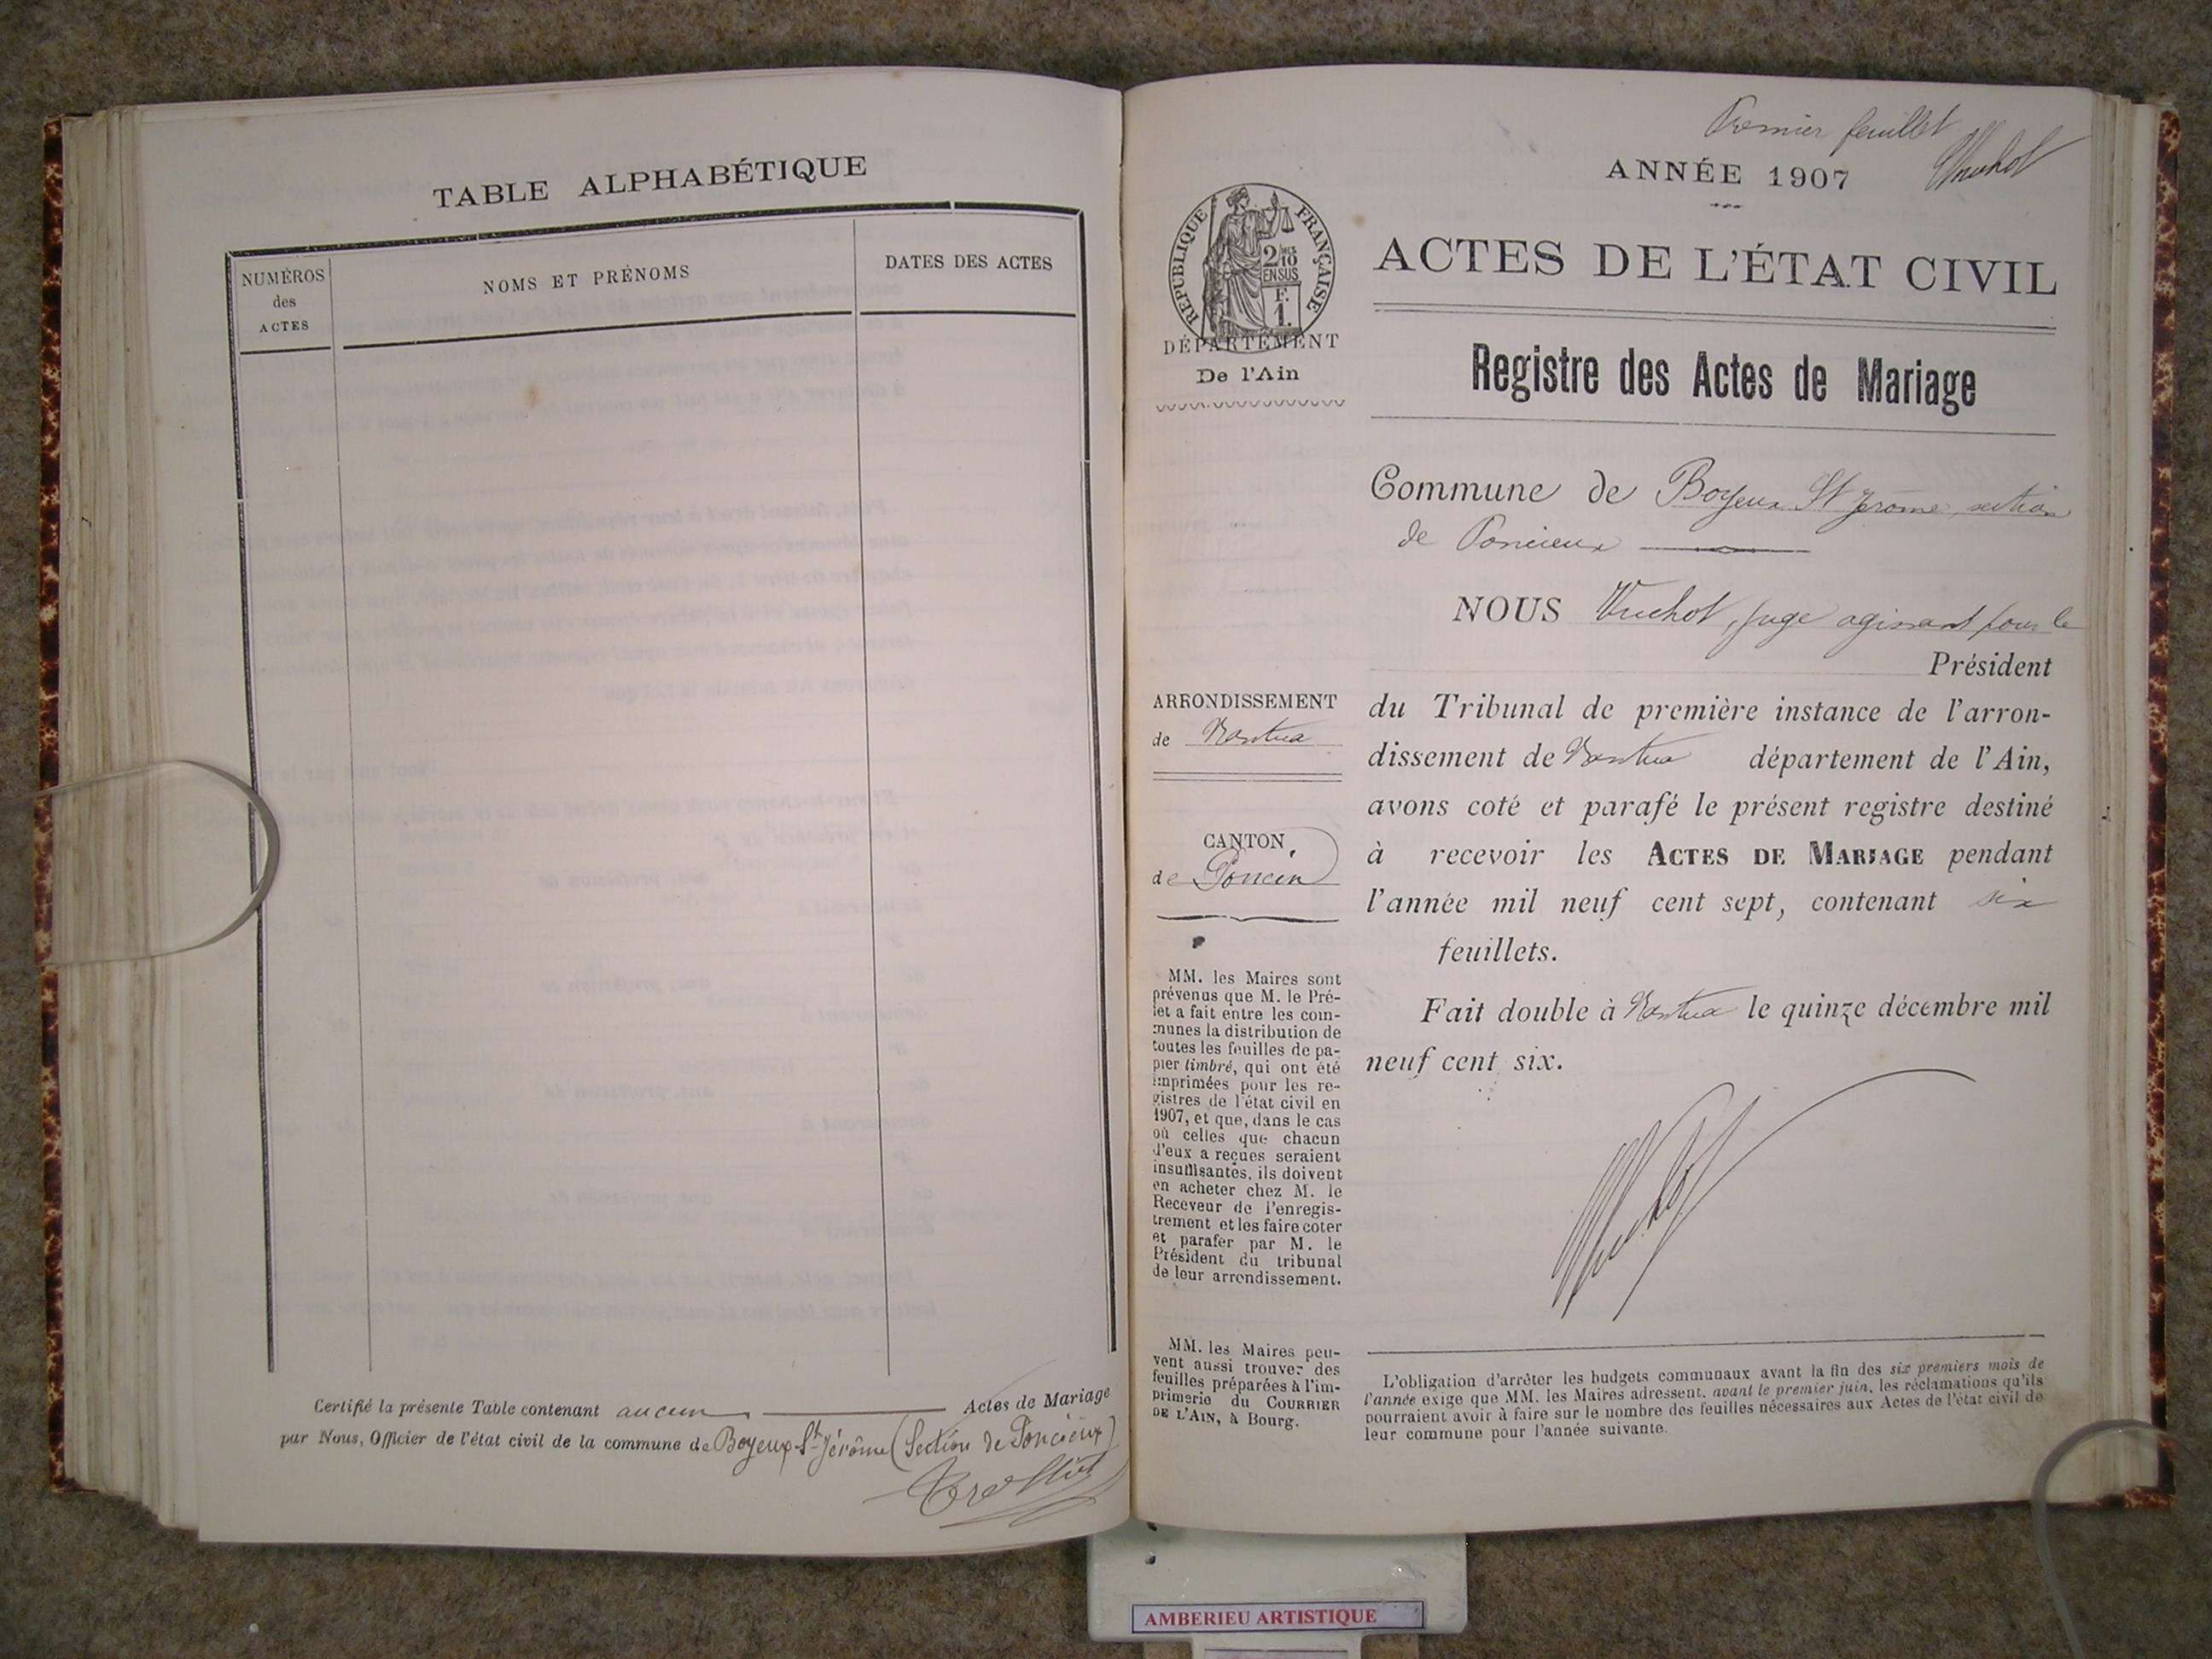 TABLE ALPHABÉTIQUE
NUMÉROS
des
ACTES
NOMS ET PRÉNOMS
DATES DES ACTES
Certifié la présente Table contenant aucun Actes de Mariage
par Nous, Officier de l'état civil de la commune de Boyeux-St-Jérôme (Section de Poncieux)
Premier feuillet
ANNÉE 1907
RÉPUBLIQUE FRANÇAISE
2 MES
10
EN SUS
F.
1.
DÉPARTEMENT
De l'Ain
ACTES DE L'ÉTAT CIVIL
Registre des Actes de Mariage
Commune de Boyeux St Jérome, section
de Poncieux
NOUS Vuchot, juge agissant pour le
Président
du Tribunal de première instance de l'arron-
dissement de Nantua département de l'Ain,
avons coté et parafé le présent registre destiné
à recevoir les ACTES DE MARIAGE pendant
l'année mil neuf cent sept, contenant six
feuillets.
Fait double à Nantua le quinze décembre mil
neuf cent six.
ARRONDISSEMENT
de Nantua
CANTON
de Poncin
MM. les Maires sont
prévenus que M. le Pré-
fet a fait entre les com-
munes la distribution de
toutes les feuilles de pa-
pier timbré, qui ont été
imprimées pour les re-
gistres de l'état civil en
1907, et que, dans le cas
où celles que chacun
d'eux a reçues seraient
insuffisantes, ils doivent
en acheter chez M. le
Receveur de l'enregis-
trement et les faire coter
et parafer par M. le
Président du tribunal
de leur arrondissement.
MM. les Maires peu-
vent aussi trouver des
feuilles préparées à l'im-
primerie du COURRIER
DE L'AIN, à Bourg.
L'obligation d'arrêter les budgets communaux avant la fin des six premiers mois de
l'année exige que MM. les Maires adressent, avant le premier juin, les réclamations qu'ils
pourraient avoir à faire sur le nombre des feuilles nécessaires aux Actes de l'état civil de
leur commune pour l'année suivante.
AMBERIEU ARTISTIQUE